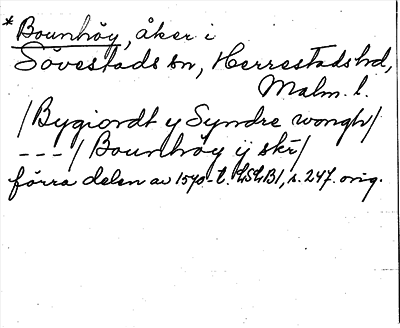 * Bounhöy, åker i
Sövestads sn, Herrestads hd,
Malm. l.
/Bygiordt y Syndre wongh/
---/Bounhöy ij skr/
förra delen av 1540-t. LSLB1, s. 247. orig.